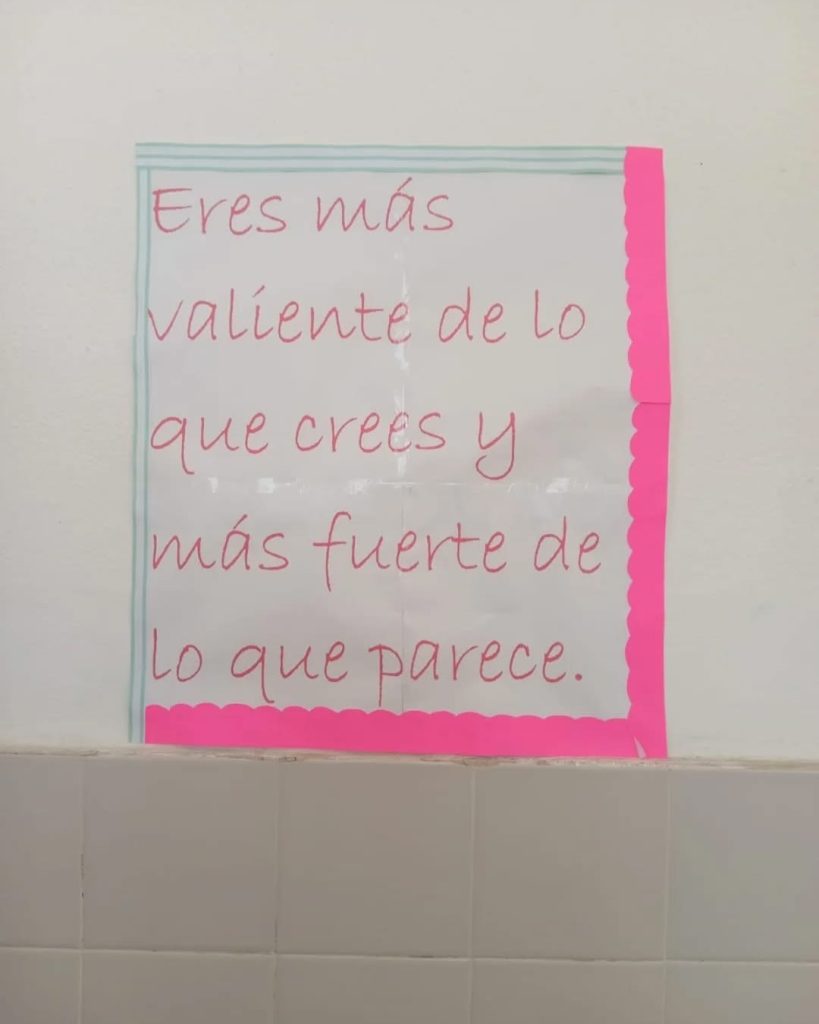 Eres más
valiente de lo
que crees y
más fuerte de
lo que parece.